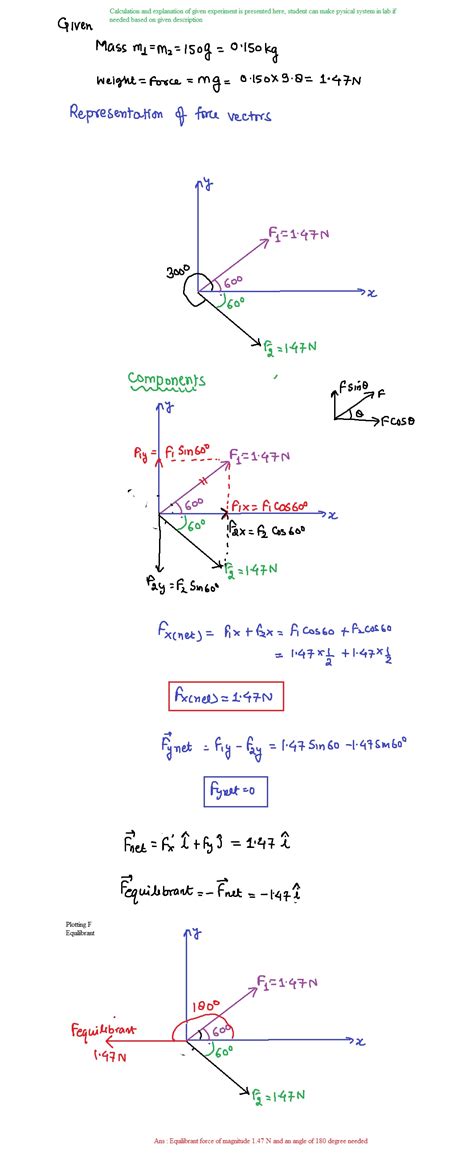 Calculation and explanation of given experiment is presented here, student can make pysical system in lab.if
needed based on given description
Given
Mass m₁=m₂=150g = 0.150kg
Weight=Force = mg= 0.150×9.8= 1.47N
Representation of force vectors
y
F₁=1.47N
300°
60°
x
60°
F₂=1.47N
Components
Fsinθ
F
θ
Fcosθ
y
F₁y = F₁ Sin60°
F₁=1.47N
60°
F₁x= F₁Cos60°
x
60°
F₂x=F₂ Cos60°
F₂=1.47N
F₂y=F₂ Sin60°
Fx(net)= F₁x+F₂x= F₁Cos60+F₂cos60
= 1.47×1/2 +1.47×1/2
Fx(net)=1.47N
F⃗ynet = F₁y-F₂y =1.47Sin60-1.47Sin60°
Fynet=0
F⃗net = Fx î+Fy ĵ = 1.47 î
F⃗equilibrant=-F⃗net =-1.47î
Plotting F
Equilibrant
y
F₁=1.47N
180°
Fequilibrant
60°
x
1.47N
60°
F₂=1.47N
Ans : Equilibrant force of magnitude 1.47 N and an angle of 180 degree needed